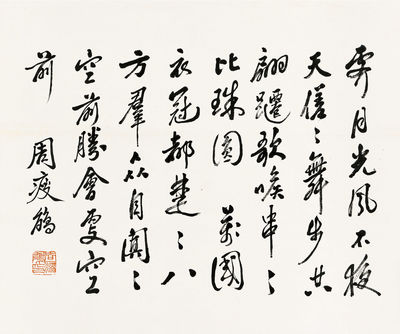 霽月光風不夜
天僊〻舞步共
翩躚歌喉串〻
比珠圓 萬國
衣冠都楚〻八
方羣众自闐〻
空前勝會更空
前 周瘦鵑